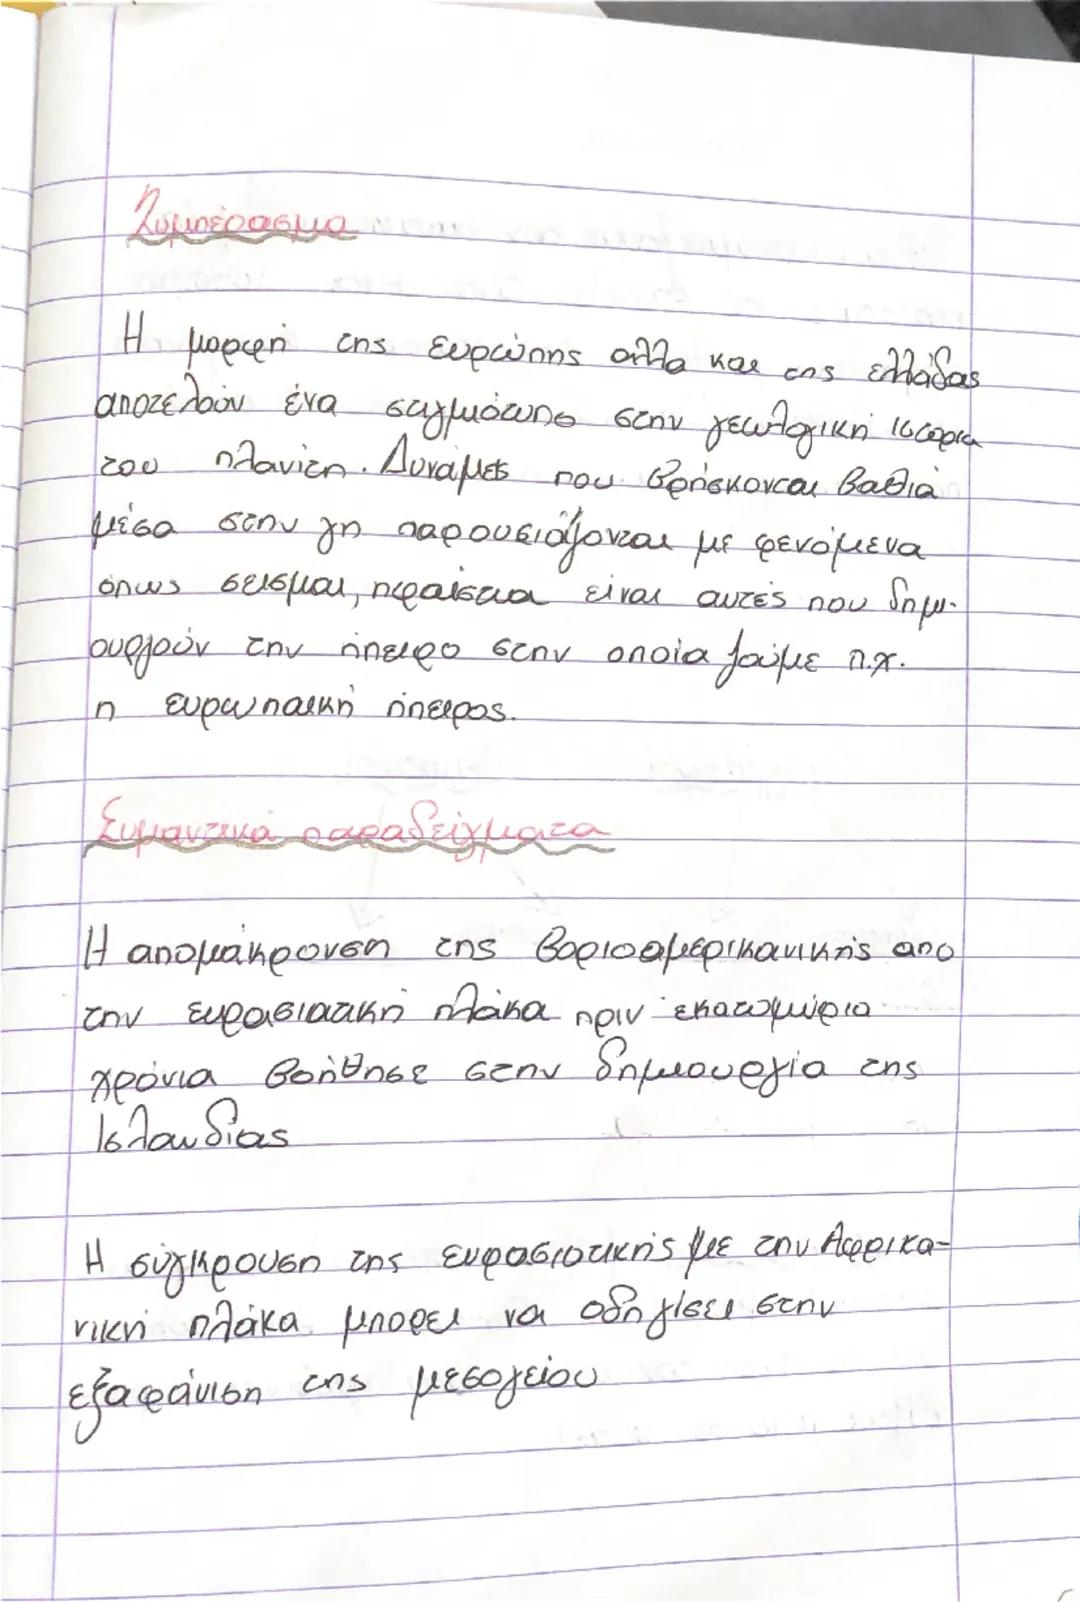 Συμπέρασμα
Η μορφή της Ευρώπης αλλα και της ελλάδας
αποτελούν ένα στιγμιότυπο στην γεωλογική ιστορια
του πλανίτη. Δυνάμες που βρίσκονται βαθιά
μέσα στην γη παρουσιάζονται με φενόμενα
όπως σεισμοι, ηφαίστεια είναι αυτές που δημι-
ουργούν την ήπειρο στην οποία ζούμε π.χ.
η ευρωπαική ήπειρος.
Συμαντικά παραδείγματα
Η απομάκρουνση της βοριοαμερικανικής απο
την ευρασιατική πλάκα πριν εκατομμύρια
χρόνια βοήθησε στην δημιουργία της
Ισλανδίας
Η σύγκρουση της ευρασιατικής με την Αφρικα-
νική πλάκα μπορει να οδηγίσει στην
εξαφάνιση της μεσογείου